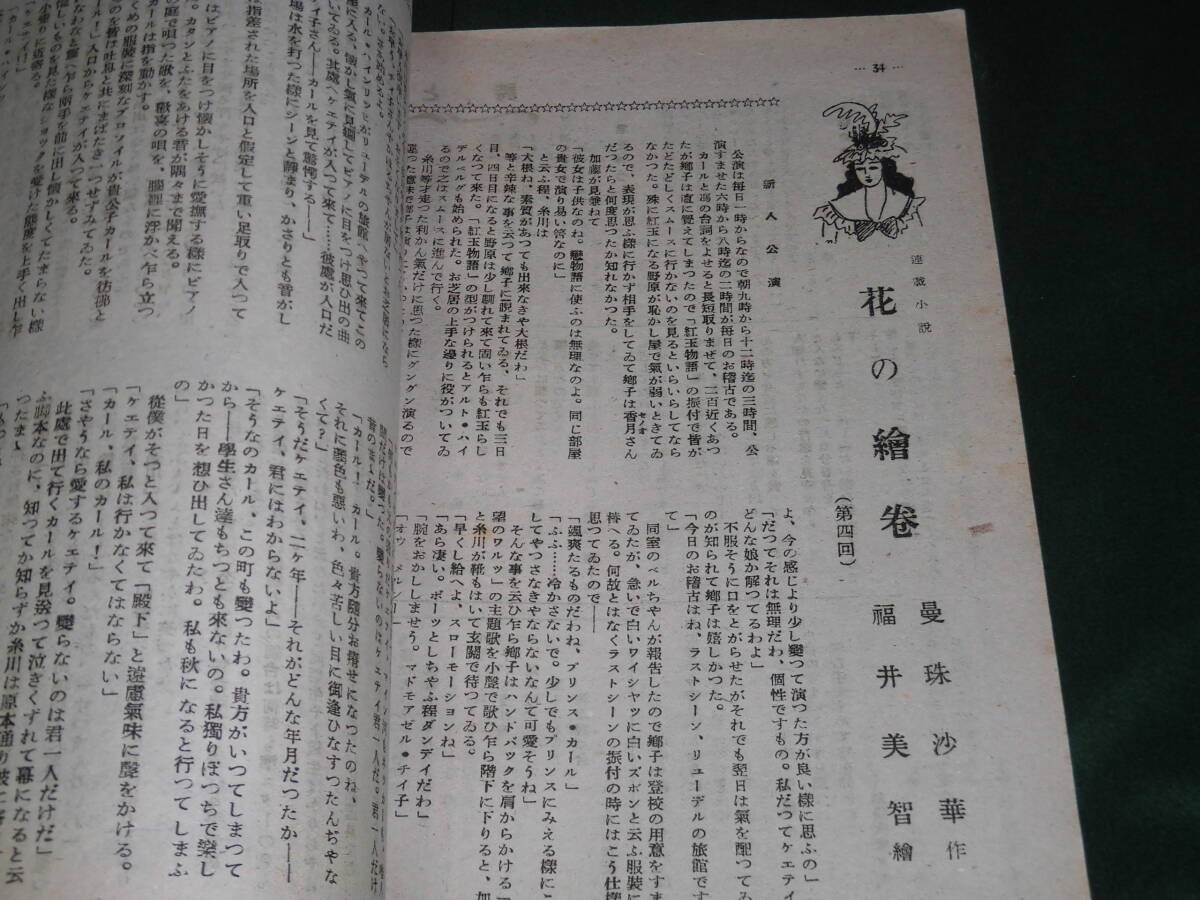 … 34 …
連載小說
花の繪卷
(第四回)
曼珠沙華作
福井美智繪
新人公演
公演は每日一時からなので朝九時から十二時迄の三時間、公
演すませた六時から八時迄の二時間が每日のお稽古である。
カールと馮の台詞をよせると長短取りまぜて、二百近くあつ
たが鄕子は直に覺えてしまつたので「紅玉物語」の振付で皆が
たどたどしくスムースに行かないのを見るといらいらしてなら
なかつた。殊に紅玉になる野原が恥かし屋で氣が弱いときてゐ
るので、表現が思ふ樣に行かず相手をしてゐて鄕子は香月さん
だつたらと何度思つたか知れなかつた。
加藤が見兼ねて
「彼女は子供なのね。戀物語に使ふのは無理なのよ。同じ部屋
の貴女で演り易い筈なのに」
と云ふ程、糸川は
「大根ね、素質があつても出來なきや大根だわ」
等と辛辣な事を云つて鄕子に睨まれてゐる、それでも三日
目、四日目になると野原は少し馴れて來て固い乍らも紅玉らし
くなつて來た。「紅玉物語」の型がつけられるとアルト・ハイ
デルベルグも始められた。お芝居の上手な連りに役がついてゐ
るので之はスムースに進んで行く。
糸川等才走つた利かん氣だけに思つた樣にグングン演るので
よ、今の感じより少し變つて演つた方が良い樣に思ふの」
「だつてそれは無理だわ、個性ですもの。私だつてケエテイ
どんな娘か解つてるわよ」
不服そうに口をとがらせたがそれでも翌日は氣を配つてゐ
のが知られて鄕子は嬉しかつた。
「今日のお稽古はね、ラストシーン、リューデルの旅館です
て」
同室のベルちやんが報告したので鄕子は登校の用意をすま
てゐたが、急いで白いワイシヤツに白いズボンと云ふ服裝に
替へる。何故とはなくラストシーンの振付の時にはこう仕樣
思つてゐたので――
「颯爽たるものだわね、プリンス・カール」
「ふふ……冷かさないで。少しでもプリンスにみえる樣にこ
してやつさなきやならないなんて可愛そうね」
そんな事を云ひ乍ら鄕子はハンドバックを肩からかける「
望のワルツ」の主題歌を小聲で歌ひ乍ら階下に下りると、加
と糸川が靴もはいて玄關で待つてゐる。
「早くし給へよ、スローモーションね」
「あら凄い。ボーッとしちやふ程ダンデイだわ」
「腕をおかししませう。マドモアゼル・チイ子」
「オゥ メルシー」
カール・ハインリッヒがリューデルの旅館へやつて來てこの
室に入る、懷かし氣に見廻してピアノに目をつけ思ひ出の曲
ゐる。其處へケエテイが入つて來て……彼處が入口だ
イ子さん――カールを見て驚愕する――」
場は水を打つた樣にジーンと靜まり、かさりとも音がし
は指差された場所を入口と假定して重い足取りで入つて
はピアノに目をつけ懷かしそうに愛撫する樣にピアノ
る。カタンとふたをあける音が隅々まで聞える。
カールは指を動かす。
の庭で唄つた歌を、歡喜の唄を、朧裡に浮かべ乍ら立つ
くめの服裝に深刻なプロフイルが貴公子カールを彷彿と
の皆は吐息と共にまばたき一つせずみてゐた。
ール!」入口からケエテイが入つて來る。
なわなと顫へ乍ら兩手を前に出し懷かしくてたまらない樣
怖しいものを見た樣なショックを受けた態度を上手く出し乍
小走りに近寄る。
「ケエテイ!」
「カール! カール。貴方隨分お瘠せになつたのね、
それに顏色も惡いわ、色々苦しい目に御逢ひなすつたんぢやな
くて?」
「そうだケエテイ、二ヶ年――それがどんな年月だつたか――
ケエテイ、君にはわからないよ」
「そうなのカール、この町も變つたわ。貴方がいつてしまつて
から――學生さん達もちつとも來ないの。私獨りぼつちで樂し
かつた日を想ひ出してゐたわ。私も秋になると行つてしまふ
の」
從僕がそつと入つて來て「殿下」と遠慮氣味に聲をかける。
「ケエテイ、私は行かなくてはならない」
「カール、私のカール!」
「さようなら愛するケエテイ。變らないのは君一人だけだ」
此處で出て行くカールを見送つて泣きくずれて幕になると云
ふ脚本なのに、知つてか知らずか糸川は原本通り